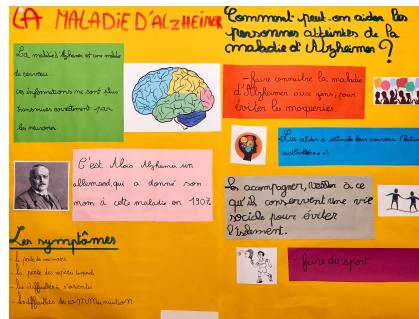 LA MALADIE D'ALZHEIMER
La maladie d'Alzheimer est une maladie
du cerveau.
Les informations ne sont plus
transmises correctement par
les neurones.
C'est Aloïs Alzheimer un
allemand, qui a donné son
nom à cette maladie en 1907.
Les symptômes
- perte de mémoire
- la perte des repères
- les difficultés à s'orienter
- les difficultés de communication
Comment peut-on aider les
personnes atteintes de la
maladie d'Alzheimer ?
- faire connaître la maladie
d'Alzheimer aux gens, pour
éviter les moqueries.
- Les aider à stimuler leur cerveau
activités...)
Les accompagner, veiller à ce
qu'ils conservent une vie
sociale pour éviter
l'isolement.
- faire du sport